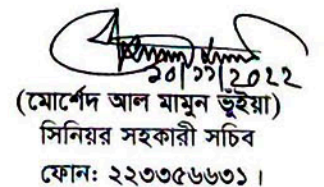 ২০|১১|2022
(মোর্শেদ আল মামুন ভূঁইয়া)
সিনিয়র সহকারী সচিব
ফোন: ২২৩৩৫৬৬৩১।